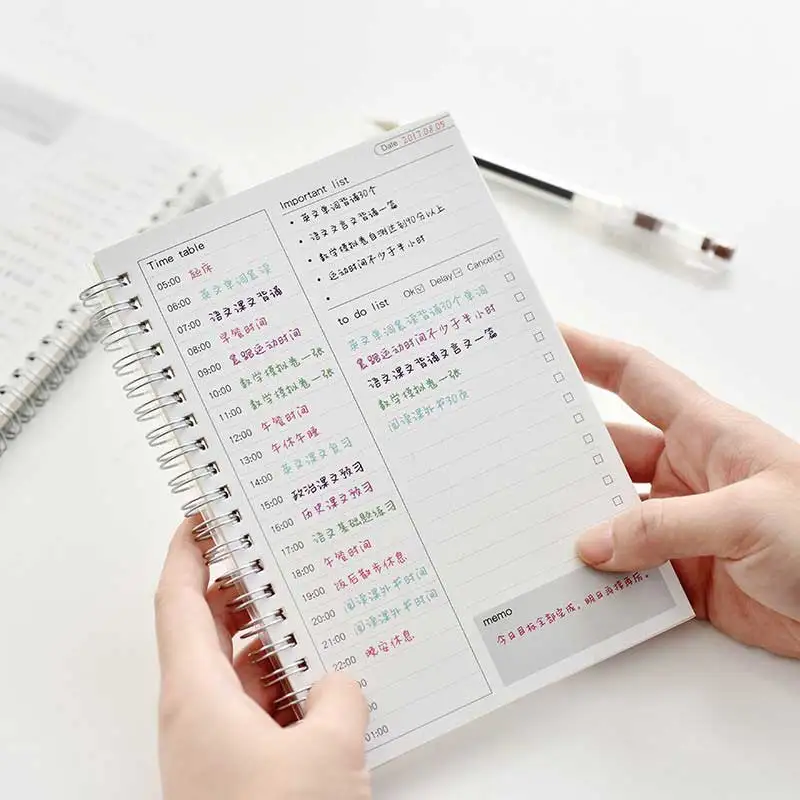 Date 2017.08.05
Important list
• 英文单词背诵30个
• 语文文言文背诵一篇
• 数学模拟卷自测达到90分以上
• 运动时间不少于半小时
•
Time table
05:00 起床
06:00 英文单词晨读
07:00 语文课文背诵
08:00 早餐时间
09:00 晨跑运动时间
10:00 数学模拟卷一张
11:00 数学模拟卷一张
12:00 午餐时间
13:00 午休午睡
14:00 英文课文复习
15:00 政治课文预习
16:00 历史课文预习
17:00 语文基础题练习
18:00 午餐时间
19:00 饭后散步休息
20:00 阅读课外书时间
21:00 阅读课外书时间
22:00 晚安休息
:00
:00
01:00
to do list Ok Delay Cancel
英文单词晨读背诵30个单词
晨跑运动时间不少于半小时
语文课文背诵文言文一篇
数学模拟卷一张
阅读课外书30页
memo
今日目标全部完成，明日再接再厉。